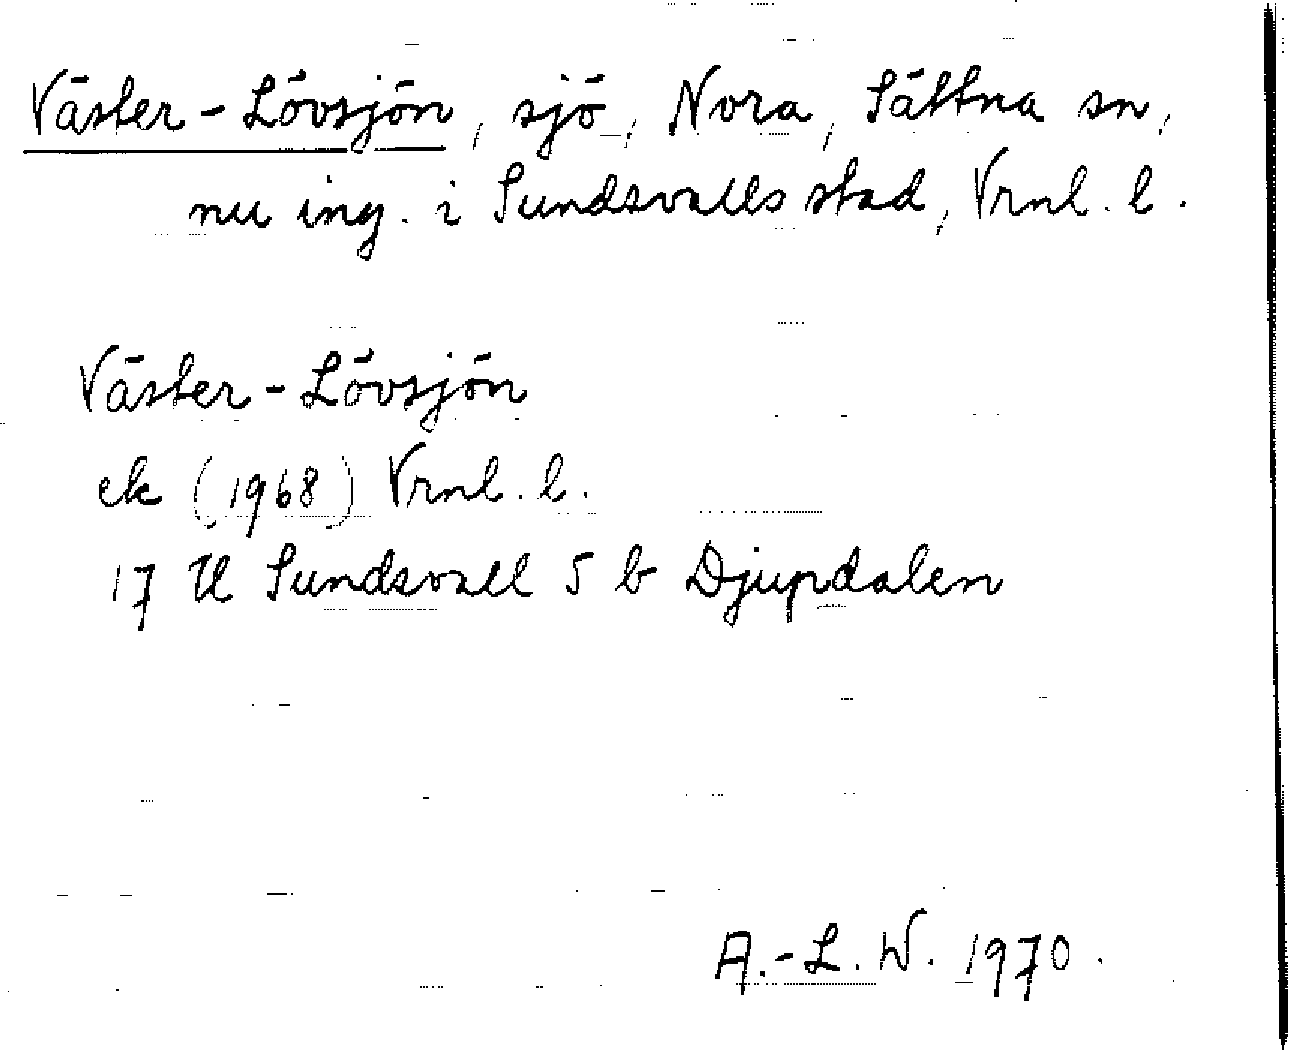 Väster-Lövsjön, sjö, Nora, Sättna sn,
nu ing. i Sundsvalls stad, Vrnl. l.
Väster-Lövsjön
ek (1968) Vrnl. l.
17 H Sundsvall 5 b Djupdalen
A.-L. W. 1970.